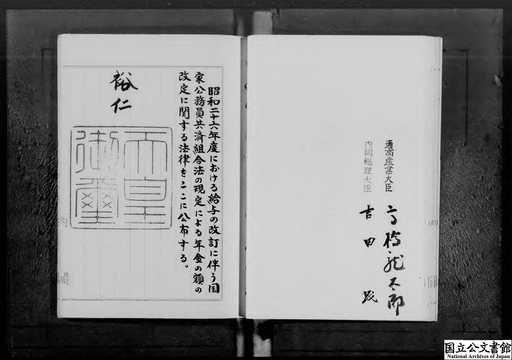 通商産業大臣 高橋龍太郎
内閣総理大臣 吉田茂
昭和二十六年度における給与の改訂に伴う国
家公務員共済組合法の規定による年金の額の
改定に関する法律をここに公布する。
裕仁
天皇
御璽
国立公文書館
National Archives of Japan